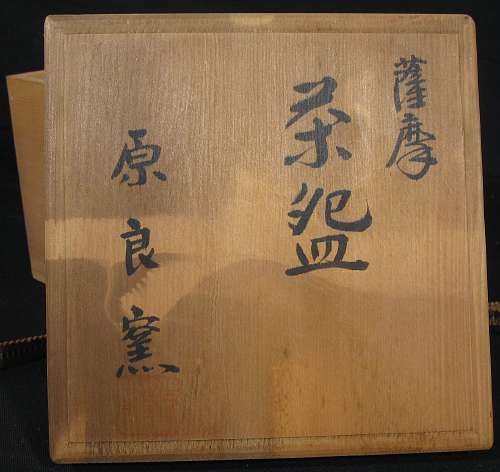 薩摩
茶盌
原良窯